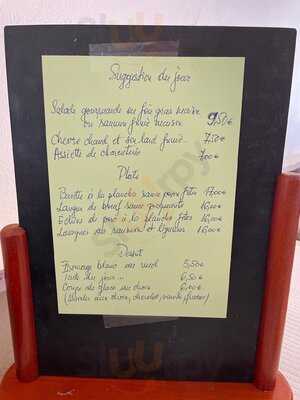 Suggestion du jour
Salade gourmande au foie gras maison
ou saumon fumé maison 9,50€
Chèvre chaud et son lard fumé... 7,50€
Assiette de charcuterie 7,00€
Plats
à la plancha sauce frites 17,00€
Langue de bœuf sauce piquante 16,00€
de porc à la plancha frites 16,00€
Lasagnes au saumon et légumes 16,00€
Dessert
Fromage blanc au miel 5,50€
Tarte du jour... 6,50€
Coupe de glace au choix 6,00€